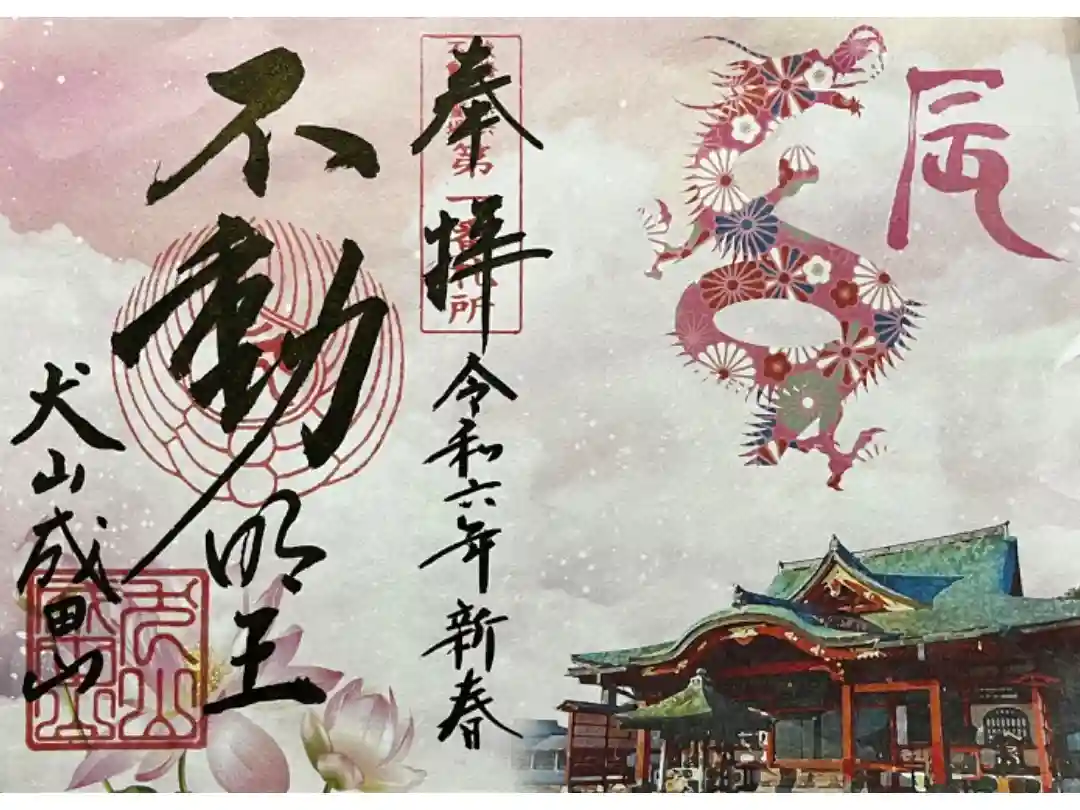 辰
奉拝
第一番札所
令和六年新春
不動明王
犬山成田山